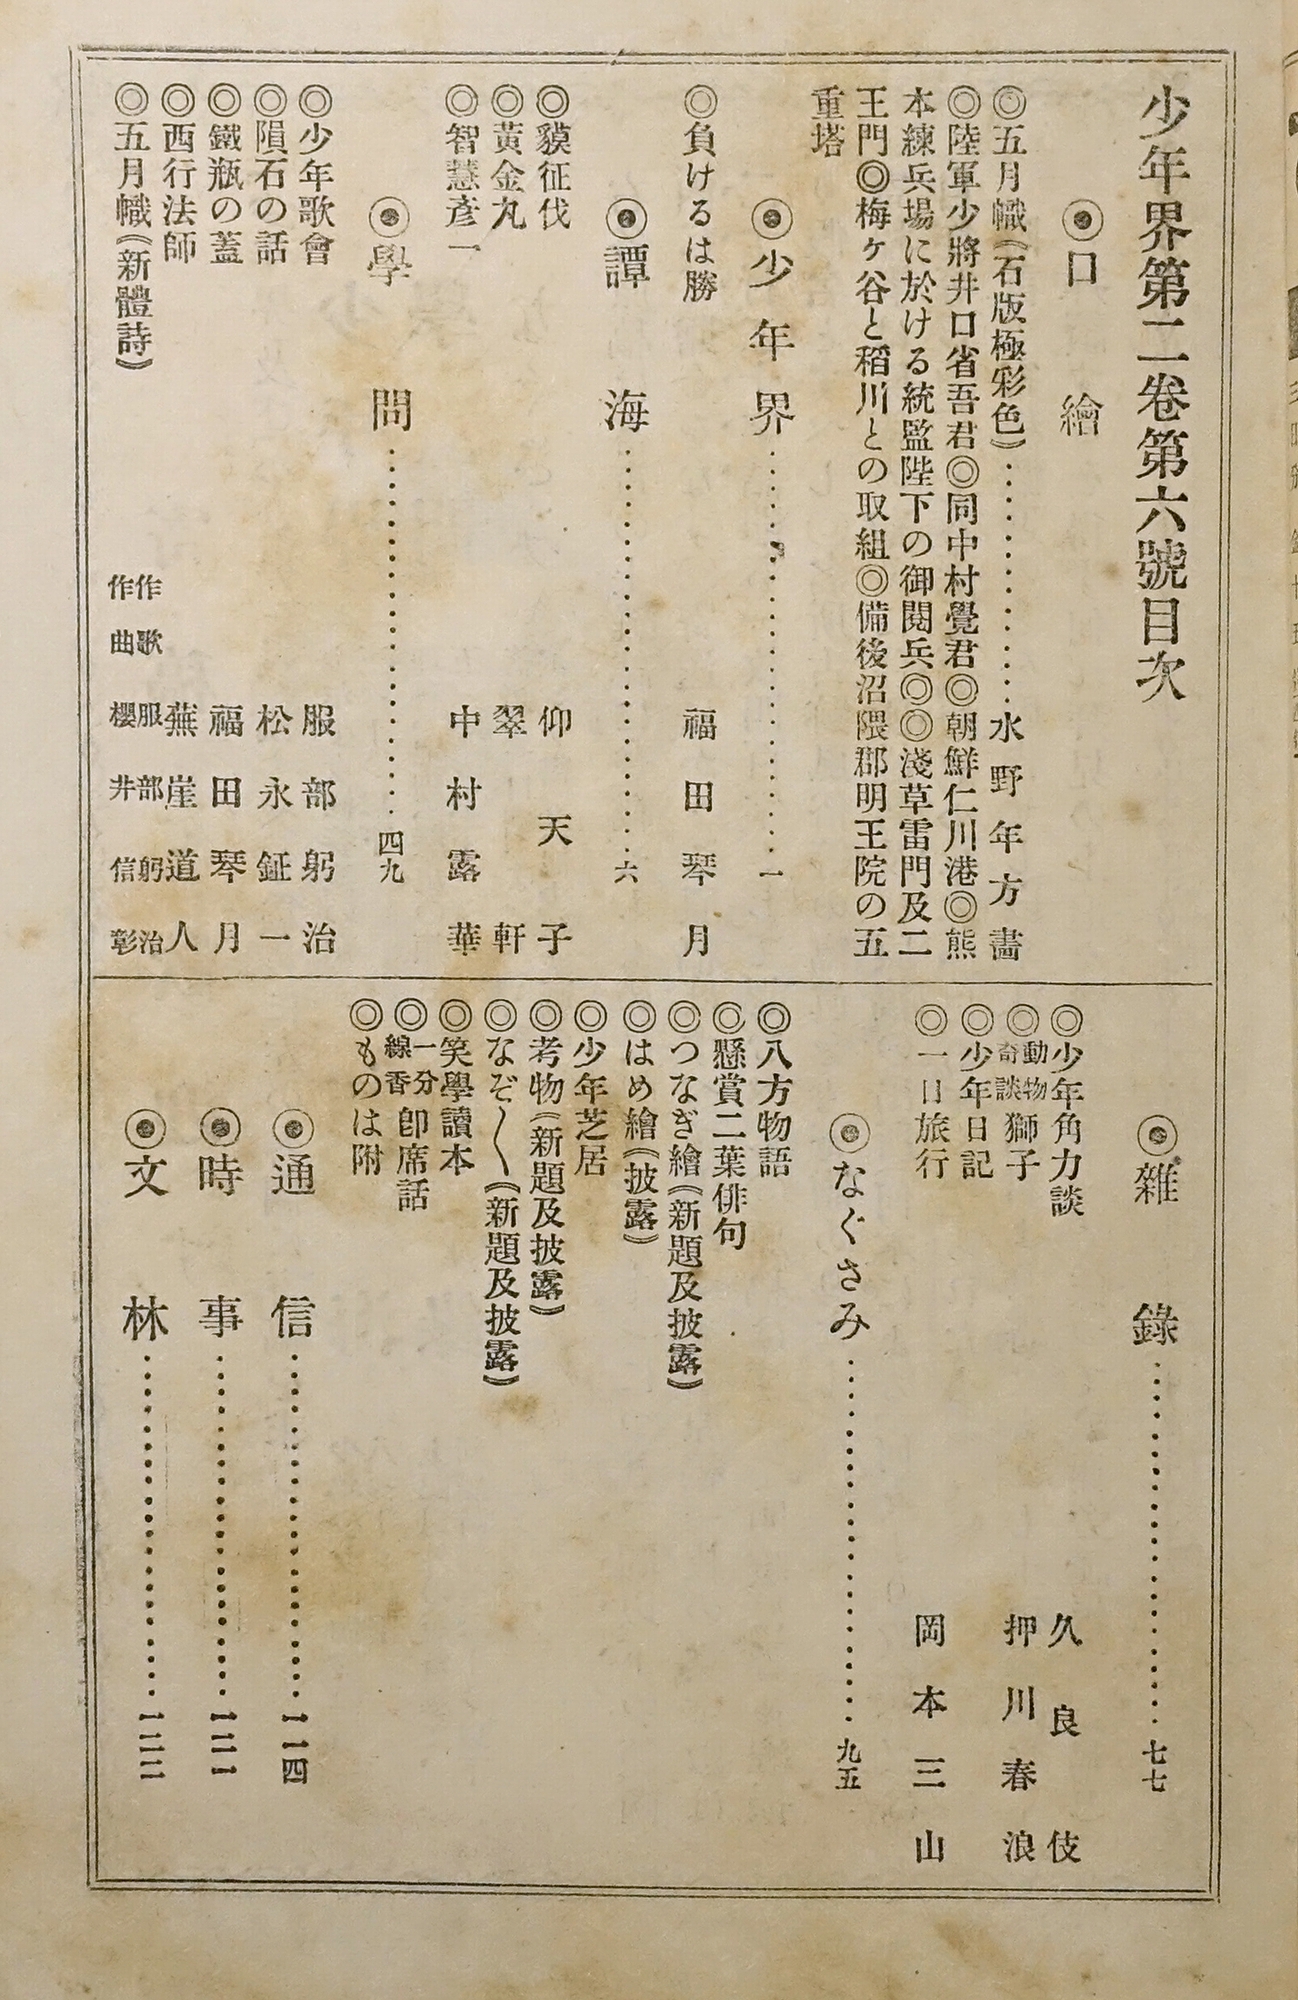 少年界第二卷第六號目次
◉口繪
◎五月幟《石版極彩色》……………水野年方畵
◎陸軍少將井口省吾君◎同中村覺君◎朝鮮仁川港◎熊
本練兵場に於ける統監陛下の御閱兵◎◎淺草雷門及二
王門◎梅ヶ谷と稻川との取組◎備後沼隈郡明王院の五
重塔
◉少年界……………一
◎負けるは勝 福田琴月
◉譚海……………六
◎貘征伐 仰天子
◎黃金丸 翠軒
◎智慧彥一 中村露華
◉學問……………四九
◎少年歌會 服部躬治
◎隕石の話 松永鉦一
◎鐵瓶の蓋 福田琴月
◎西行法師 蕪崖道人
◎五月幟《新體詩》 作歌 服部躬治
作曲 櫻井信彰
◉雜錄……………七七
◎少年角力談 久良伎
◎動物奇談獅子 押川春浪
◎少年日記
◎一日旅行 岡本三山
◉なぐさみ……………九五
◎八方物語
◎懸賞二葉俳句
◎つなぎ繪《新題及披露》
◎はめ繪《披露》
◎少年芝居
◎考物《新題及披露》
◎なぞ〱《新題及披露》
◎笑學讀本
◎一分線香卽席話
◎ものは附
◉通信……………一一四
◉時事……………一二一
◉文林……………一二二